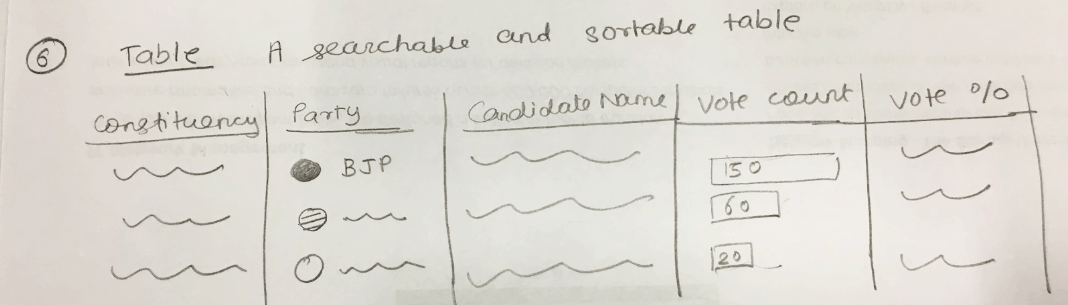 6 Table A searchable and sortable table
Constituency Party Candidate Name Vote count Vote %
BJP 150
60
20